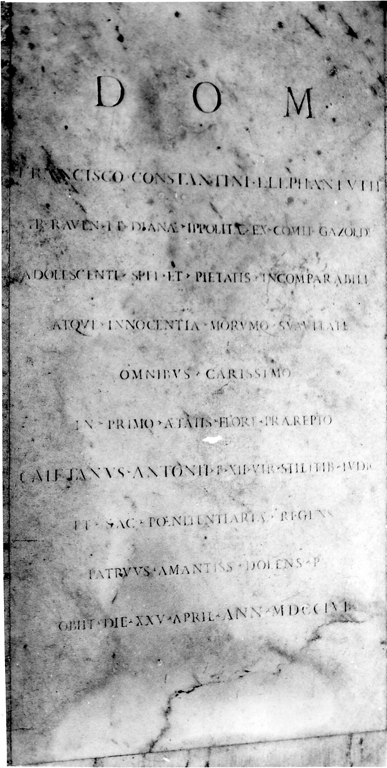 D O M
FRANCISCO · CONSTANTINI · ELEPHANTVTII
F · RAVEN · ET · DIANÆ · IPPOLITÆ · EX · COMIT · GAZOLDI
ADOLESCENTI · SPEI · ET · PIETATIS · INCOMPARABILI
ATQVE · INNOCENTIA · MORVMQ · SVAVITATE
OMNIBVS · CARISSIMO
IN · PRIMO · ÆTATIS · FLORE · PRÆREPTO
CAIETANVS · ANTONII · F · XII · VIR · STLITIB · IVDIC
ET · SAC · POENITENTIARIÆ · REGENS
PATRVVS · AMANTISS · DOLENS · P
OBIIT · DIE · XXV · APRIL · ANN · MDCCLVI